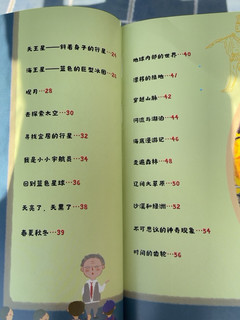 天王星——斜着身子的行星…24
海王星——蓝色的巨型冰圈…26
呗月…28
去探索太空…30
寻找宜居的行星…32
我是小小宇航员…34
回到蓝色星球…36
天亮了，天黑了…38
春夏秋冬…39
地球内部的世界…40
漂移的陆地…41
穿越山脉…42
河流与湖泊…44
海底漫游记…46
走遍森林…48
辽阔大草原…50
沙漠和绿洲…52
不可思议的神奇现象…54
时间的齿轮…56